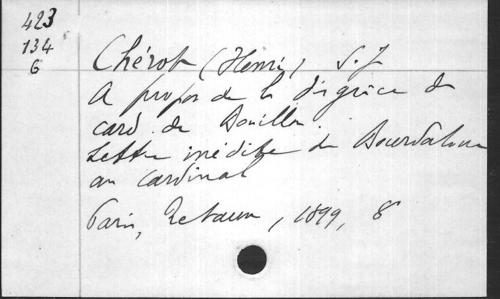 423
134
6
Chérot (Henri) S. J
A propos de la disgrâce du
card. de Bouillon.
Lettre inédite de Bourdaloue
au cardinal
Paris, Retaux, 1899, 8°